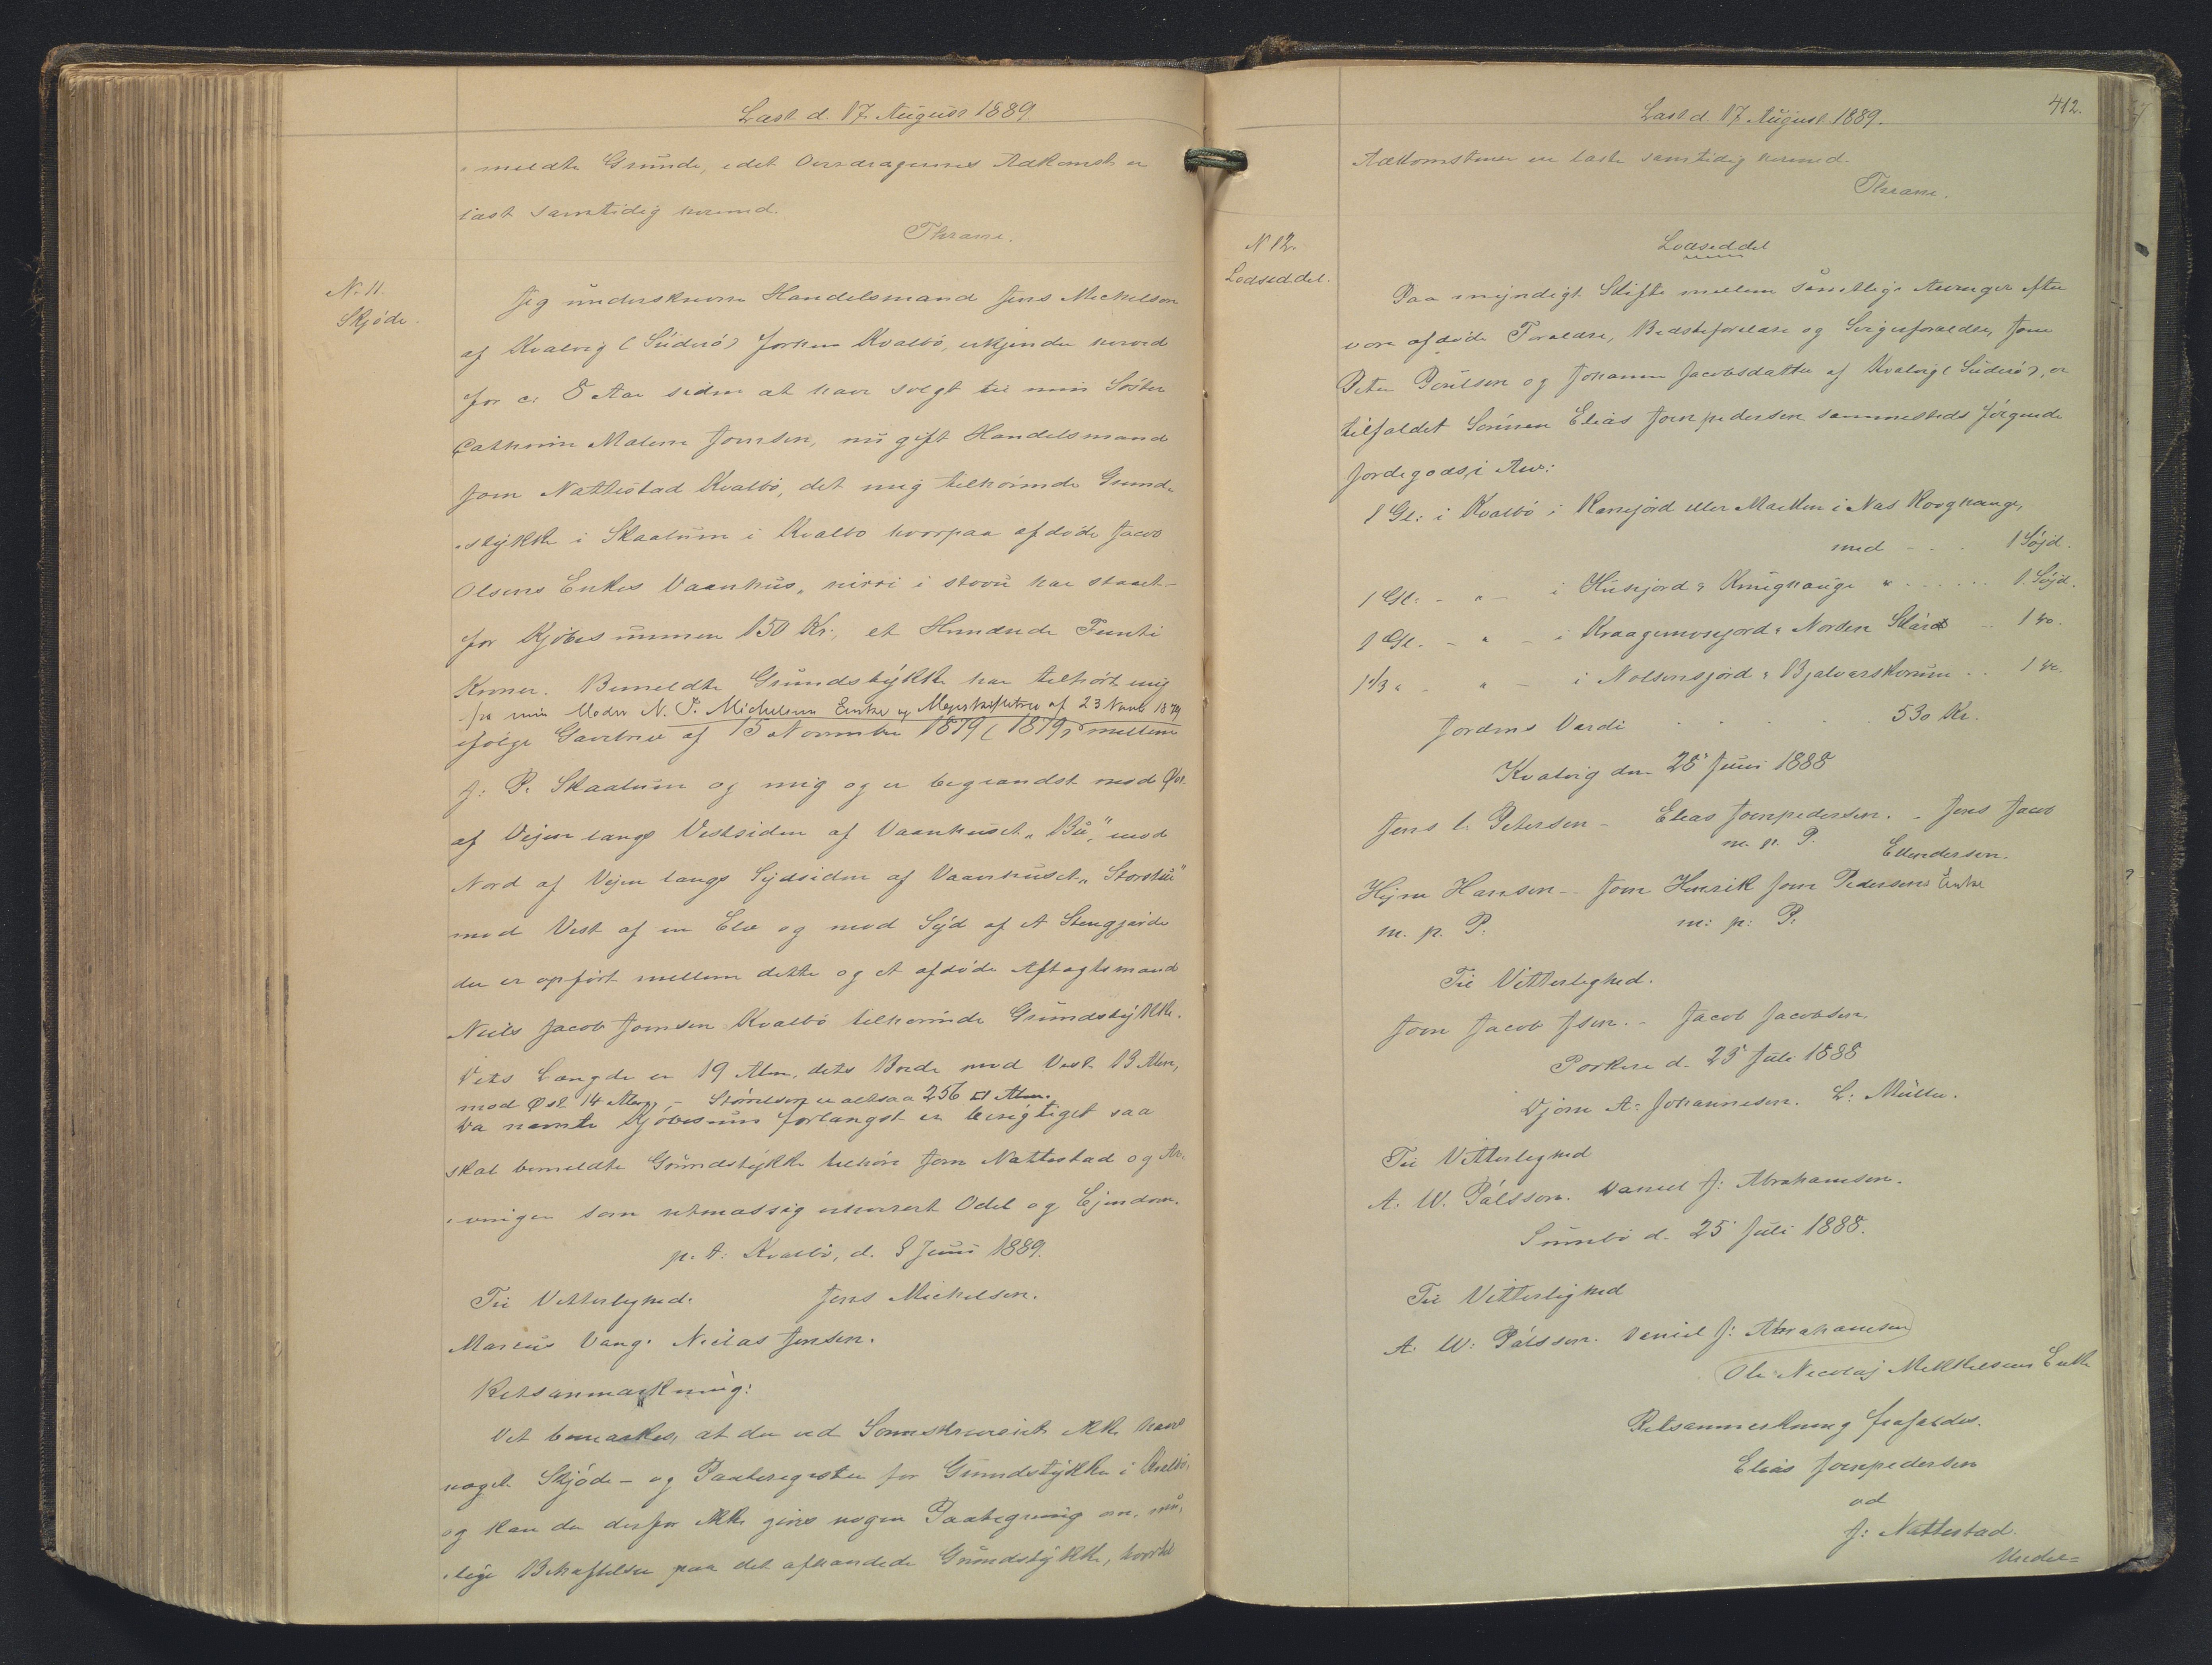 Læst d. 17. August 1889
meldte Grunde, idet Overdragerens Adkomst er
læst samtidig hermed.
Thrane.
N. 11.
Skjöde.
Jeg underskrevne Handelsmand Jens Michelsen
af Kvalvig (Suderö) forhen Kvalbö, erkjender herved
for c: 8 Aar siden at have solgt til min Söster
Cathrine Malene Joensen, nu gift Handelsmand
Joen Nattestad Kvalbö, det mig tilhörende Grund-
stykke i Skaalum i Kvalbö hvorpaa afdöde Jacob
Olsens Enkes Vaanhus, nirri i stovu har staaet
for Kjöbesummen 150 Kr., et Hundrede Femti
Kroner. Bemeldte Grundstykke har tilhört mig
fra min Moder N. P. Michelsens Enke og Mageskiftebrev af 23 Novb 1879
ifölge Gavebrev af 15 November 1879 (1879) mellem
J: P. Skaalum og mig og er begrændset mod Øst
af Vejen langs Vestsiden af Vaanhuset „Bü", mod
Nord af Vejen langs Sydsiden af Vaanhuset „Storstue"
mod Vest af en Elv og mod Syd af et Stengjærde
der er opfört mellem dette og et afdöde Aftægtsmand
Niels Jacob Joensen Kvalbö tilhörende Grundstykke.
Dets Længde er 19 Alen, dets Brede mod Vest 13 Alen,
mod Øst 14 Alen, - Störrelsen er altsaa 256 □ Alen.
Da nævnte Kjöbesum forlængst er berigtiget saa
skal bemeldte Grundstykke tilhöre Joen Nattestad og Ar-
vinger som retmæssig erhvervet Odel og Ejendom.
p. t: Kvalbö, d. 8 Juni 1889.
Til Vitterlighed. Jens Michelsen.
Marius Vang. Niclas Jensen.
Retsanmærkning:
Det bemærkes, at der ved Sorenskriveriet ikke haves
noget Skjöde- og Panteregister for Grundstykker i Kvalbö,
og kan der derfor ikke gives nogen Paategning om, mu-
lige Behæftelser paa det afhændede Grundstykke, hvortil
Læst d. 17 August 1889.
412.
Adkomsterne er læste samtidig hermed.
Thrane.
N 12.
Lodseddel.
Lodseddel
Paa myndigt Skifte mellem samtlige Arvinger efter
vore afdöde Forældre, Bedsteforældre og Svigerforældre, Joen
Peter Poulsen og Johanne Jacobsdatter af Kvalvig (Suderö), er
tilfaldet Sönnen Elias Joenpedersen sammesteds fölgende
Jordegods, i Arv:
1 Gl: i Kvalbö i Kannejord eller Marken i Nas Koughauge,
med - . . 1 Söjd.
1 Gl: - „ - i Husejord & Krughauge „ . . . . . . 1 Söjd.
1 Gl. - „ - i Kraagumsejord & Norden Skard . . 1 do.
1 1/3 „ - „ - i Nolsensjord & Bjalvarskorum . . 1 do.
Jordens Værdi . . . . 530 Kr.
Kvalvig den 25 Juni 1888
Jens C. Petersen - Elias Joenpedersen. - Jens Jacob
m. p. P. Ellendersen.
Hejne Hansen - Joen Henrik Joen Pedersens Enke
m. p. P. m: p: P.
Til Vitterlighed.
Joen Jacob Jsen. - Jacob Jacobsen.
Porkere d. 25 Juli 1888
Djone A. Johannesen. L: Müller.
Til Vitterlighed
A. W. Pálsson. Daniel J: Abrahamsen.
Sumbö d. 25 Juli 1888.
Til Vitterlighed
A. W: Pálsson. Daniel J: Abrahamsen
Ole Nicolaj Mikkelsens Enke
Retsanmerkning frafaldes.
Elias Joenpedersen
ved
J: Nattestad.
Under=